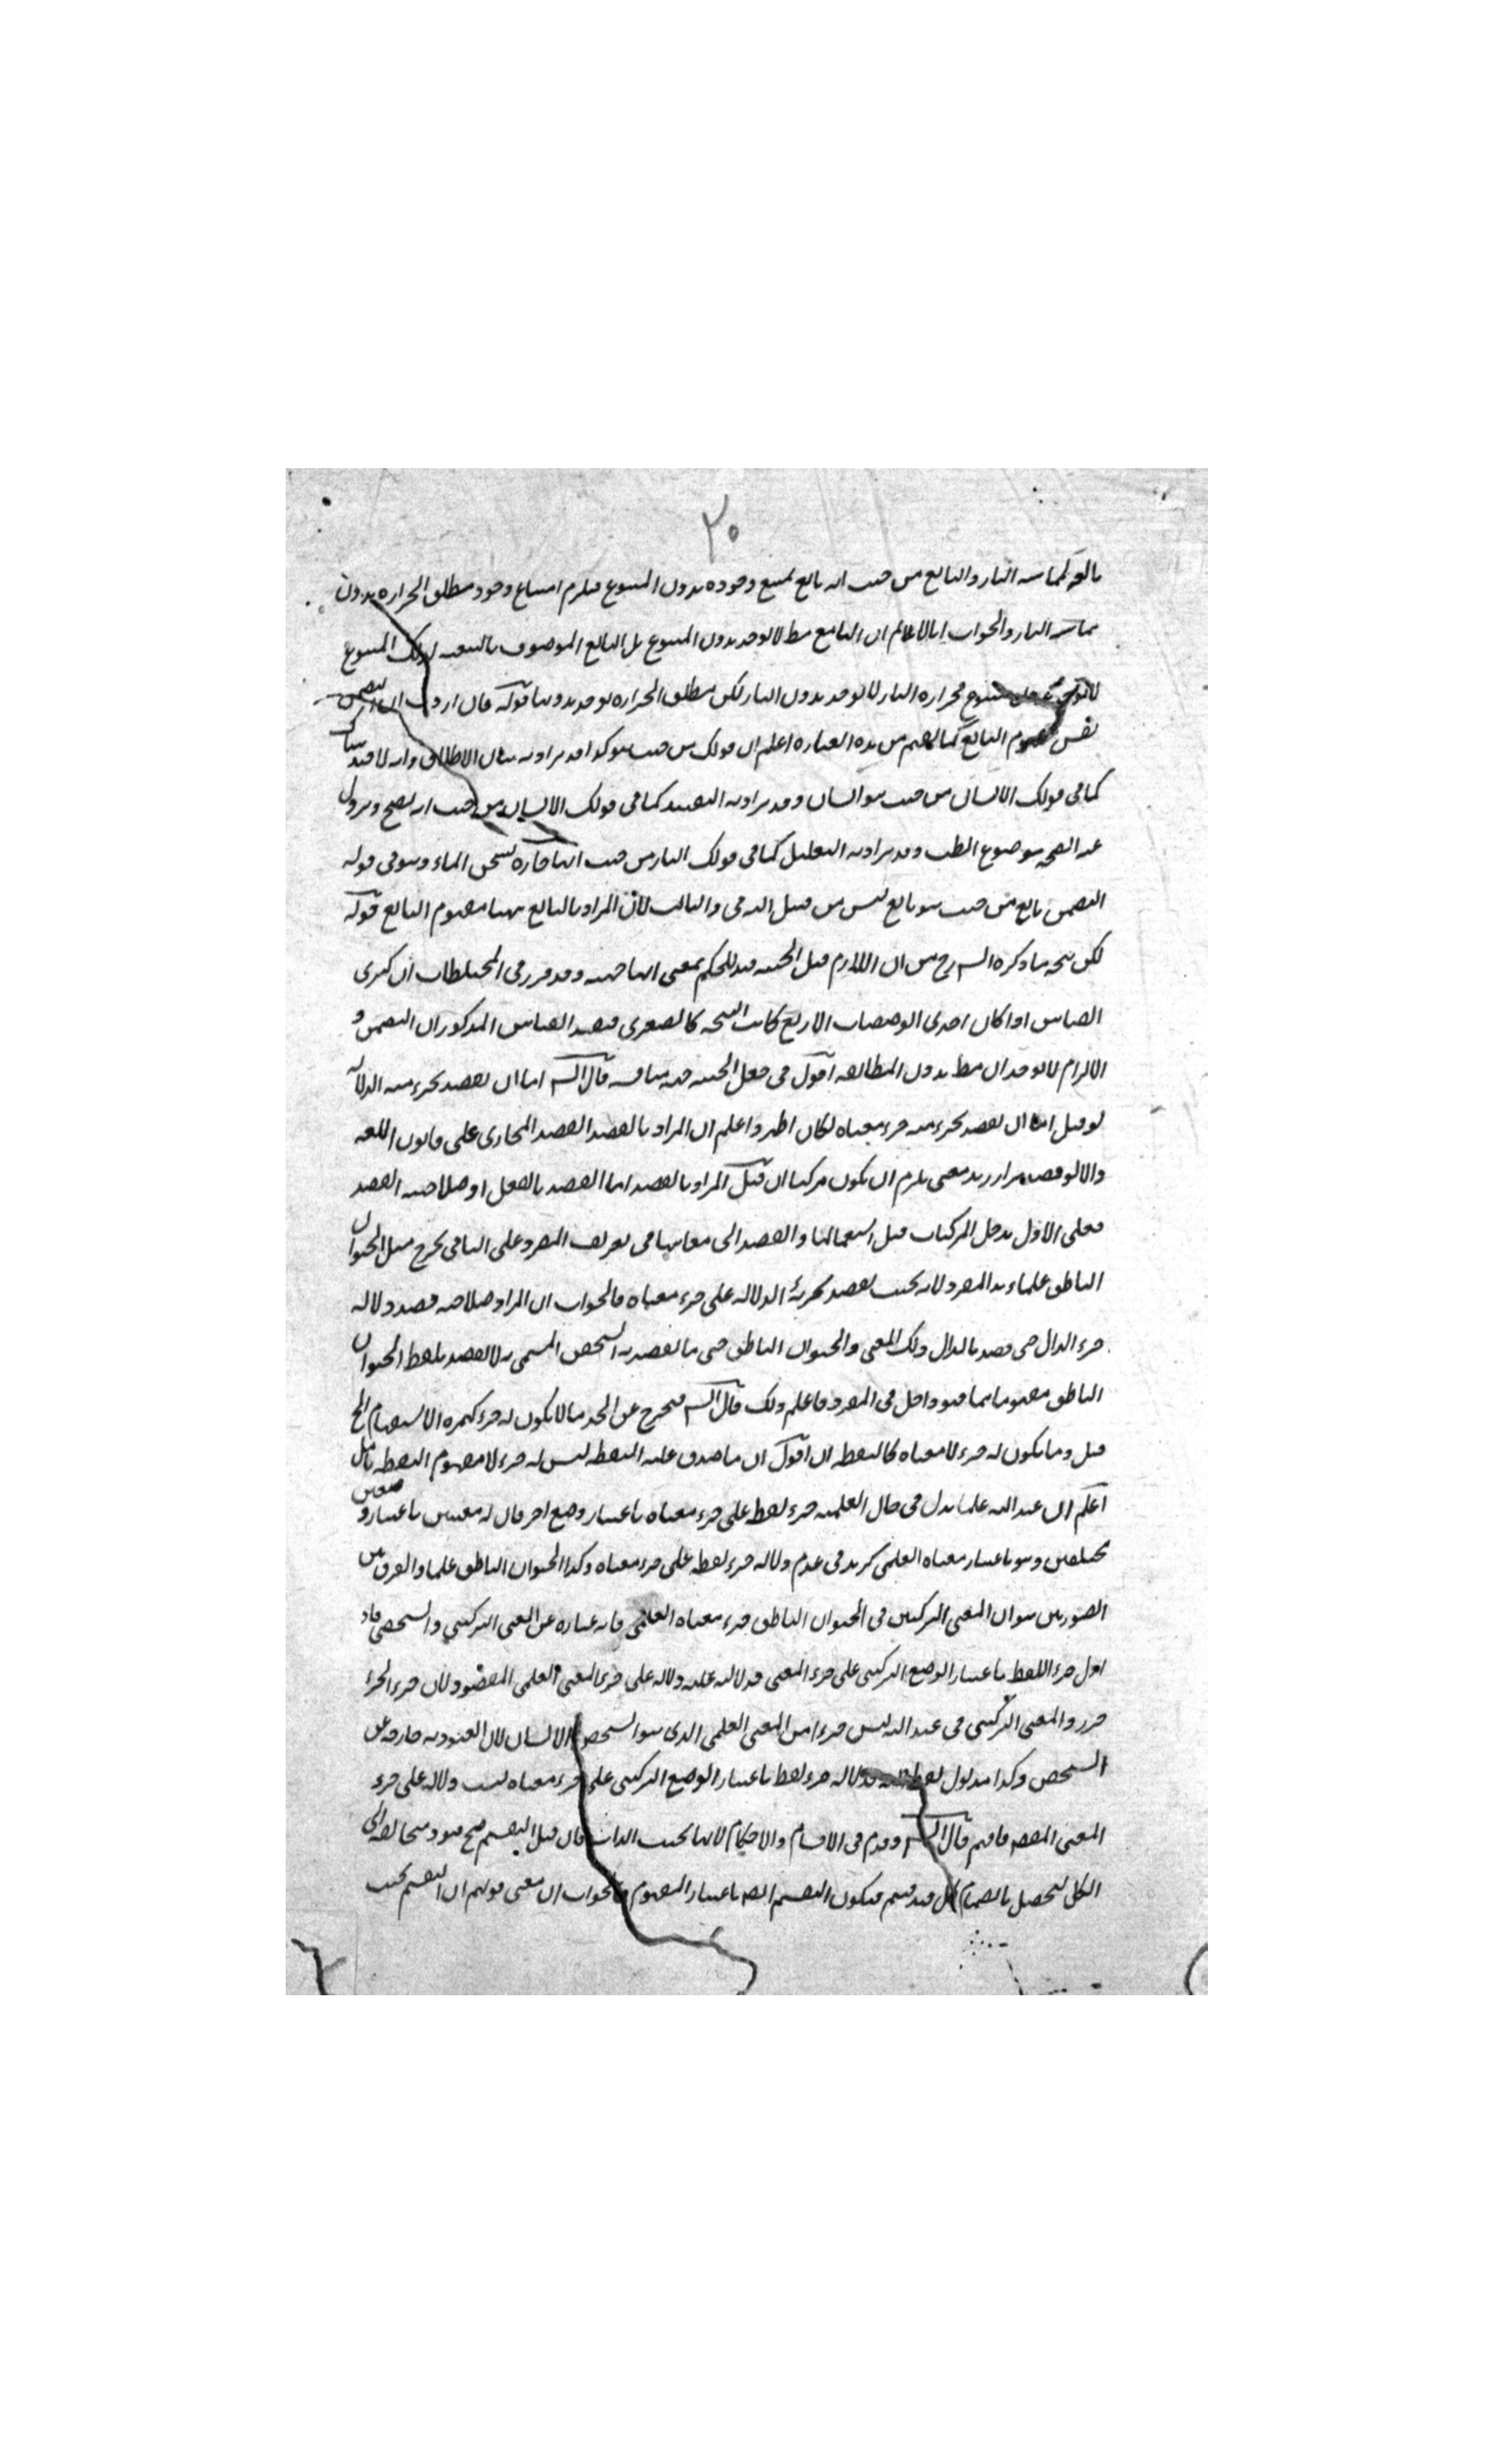 ٣٠
لمماسة النار والتابع من حيث انه تابع يمتنع وجوده بدون المتبوع فيلزم امتناع وجود مطلق الحرارة بدون
مماسة النار والجواب انا لا نم ان التابع مط لا يوجد بدون المتبوع بل التابع الموصوف بالتبعية لذلك المتبوع
فحرارة النار لا توجد بدون النار لكن مطلق الحرارة يوجد بدونها قوله فان اردت ان التضمن
نفس مفهوم التابع كما يفهم من هذه العبارة اعلم ان قولك من حيث هو كذا قد يراد به بيان الاطلاق وانه لا قيد هناك
كما في قولك الانسان من حيث هو انسان وقد يراد به التقييد كما في قولك الانسان من حيث انه يصح ويزول
عنه الصحة موضوع الطب وقد يراد به التعليل كما في قولك النار من حيث انها حارة تسخن الماء وهو في قوله
التضمن تابع من حيث هو تابع ليس من قبيل الثاني والثالث لان المراد بالتابع ههنا مفهوم التابع قوله
لكن نتيجة ما ذكره الشارح من ان اللازم قبل الحيثية قيد للحكم بمعنى انها جهته وقد قرر في المختلطات ان كبرى
القياس اذا كان احدى الوصفيات الاربع كانت النتيجة كالصغرى فينتج القياس المذكور ان التضمن و
الالتزام لا يوجدان مط بدون المطابقة اقول في جعل الحيثية جهة مناقشة قال الش اما ان يقصد بجزء منه الدلالة
لو قيل اما ان يقصد بجزء منه جزء معناه لكان اظهر واعلم ان المراد بالقصد القصد الجاري على قانون اللغة
والا لو قصد بزاء زيد معنى يلزم ان يكون مركبا ان قيل المراد بالقصد اما القصد بالفعل او صلاحية القصد
فعلى الاول يدخل المركبات قبل استعمالها والقصد الى معانيها في تعريف المفرد وعلى الثاني يخرج مثل الحيوان
الناطق علما عن المفرد لانه بحيث يقصد بجزئه الدلالة على جزء معناه فالجواب ان المراد صلاحية قصد دلالة
جزء الدال حين قصد بالدال ذلك المعنى والحيوان الناطق حين ما يقصد به الشخص المسمى به لا يقصد بلفظ الحيوان
الناطق مفهوماهما فهو داخل في المفرد فاعلم ذلك قال الش فيخرج عن الحد ما لا يكون له جزء كهمزة الاستفهام الخ
قيل وما يكون له جزء لا معناه كالنقطة اقول ان ما صدق عليه النقطة ليس له جزء لا مفهوم النقطة تأمل
اعلم ان عبد الله علما يدل في حال العلمية جزء لفظه على جزء معناه باعتبار وضع اخر فان له معنيين باعتبار وضعين
مختلفين وهو باعتبار معناه العلمي كزيد في عدم دلالة جزء لفظه على جزء معناه وكذا الحيوان الناطق علما والفرق بين
الصورتين هو ان المعنى التركيبي في الحيوان الناطق جزء معناه العلمي فانه عبارة عن المعنى التركيبي والتشخص فاذا
دل جزء اللفظ باعتبار الوضع التركيبي على جزء المعنى فدلالته عليه دلالة على جزء المعنى العلمي المقصود لان جزء الجزء
جزء والمعنى التركيبي في عبد الله ليس جزءا من المعنى العلمي الذي هو الشخص الانساني لان العبودية خارجة عن
الشخص وكذا مدلول لفظ الله فدلالة جزء لفظه باعتبار الوضع التركيبي على جزء معناه ليست دلالة على جزء
المعنى المقصود فافهم قال الش وقدم في الاقسام والاحكام لانها بحسب الذات فان قيل التقسيم ضم قيود متخالفة الى
الكل ليحصل بانضمام كل قيد قسم فيكون التقسيم ايضا باعتبار المفهوم فالجواب ان معنى قولهم ان التقسيم بحسب